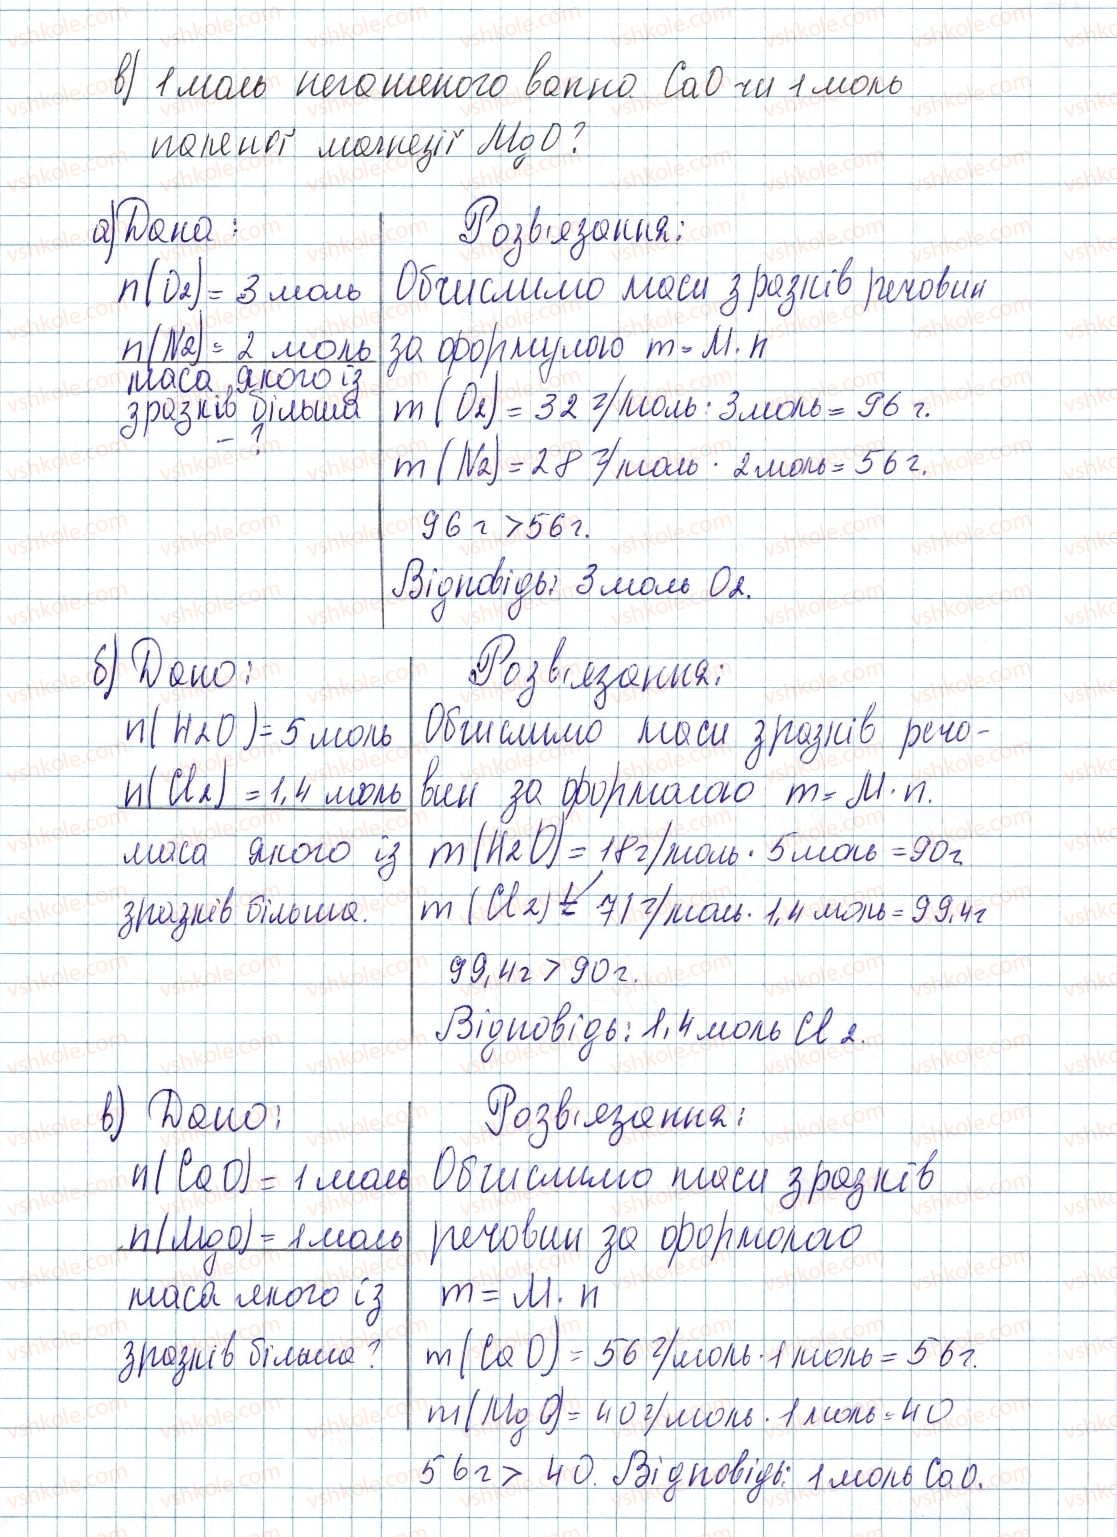 в) 1 моль негашеного вапна CaO чи 1 моль
паленої магнезії MgO?
а) Дано:
n(O2) = 3 моль
n(N2) = 2 моль
маса якого із
зразків більша
- ?
Розв'язання:
Обчислимо маси зразків речовин
за формулою m = M · n
m(O2) = 32 г/моль · 3 моль = 96 г.
m(N2) = 28 г/моль · 2 моль = 56 г.
96 г > 56 г.
Відповідь: 3 моль O2.
б) Дано:
n(H2O) = 5 моль
n(Cl2) = 1,4 моль
маса якого із
зразків більша.
Розв'язання:
Обчислимо маси зразків речо-
вин за формолою m = M · n.
m(H2O) = 18 г/моль · 5 моль = 90 г
m(Cl2) = 71 г/моль · 1,4 моль = 99,4 г
99,4 г > 90 г.
Відповідь: 1,4 моль Cl2.
в) Дано:
n(CaO) = 1 моль
n(MgO) = 1 моль
маса якого із
зразків більша?
Розв'язання:
Обчислимо маси зразків
речовин за формолою
m = M · n
m(CaO) = 56 г/моль · 1 моль = 56 г.
m(MgO) = 40 г/моль · 1 моль = 40
56 г > 40. Відповідь: 1 моль CaO.
vshkole.com